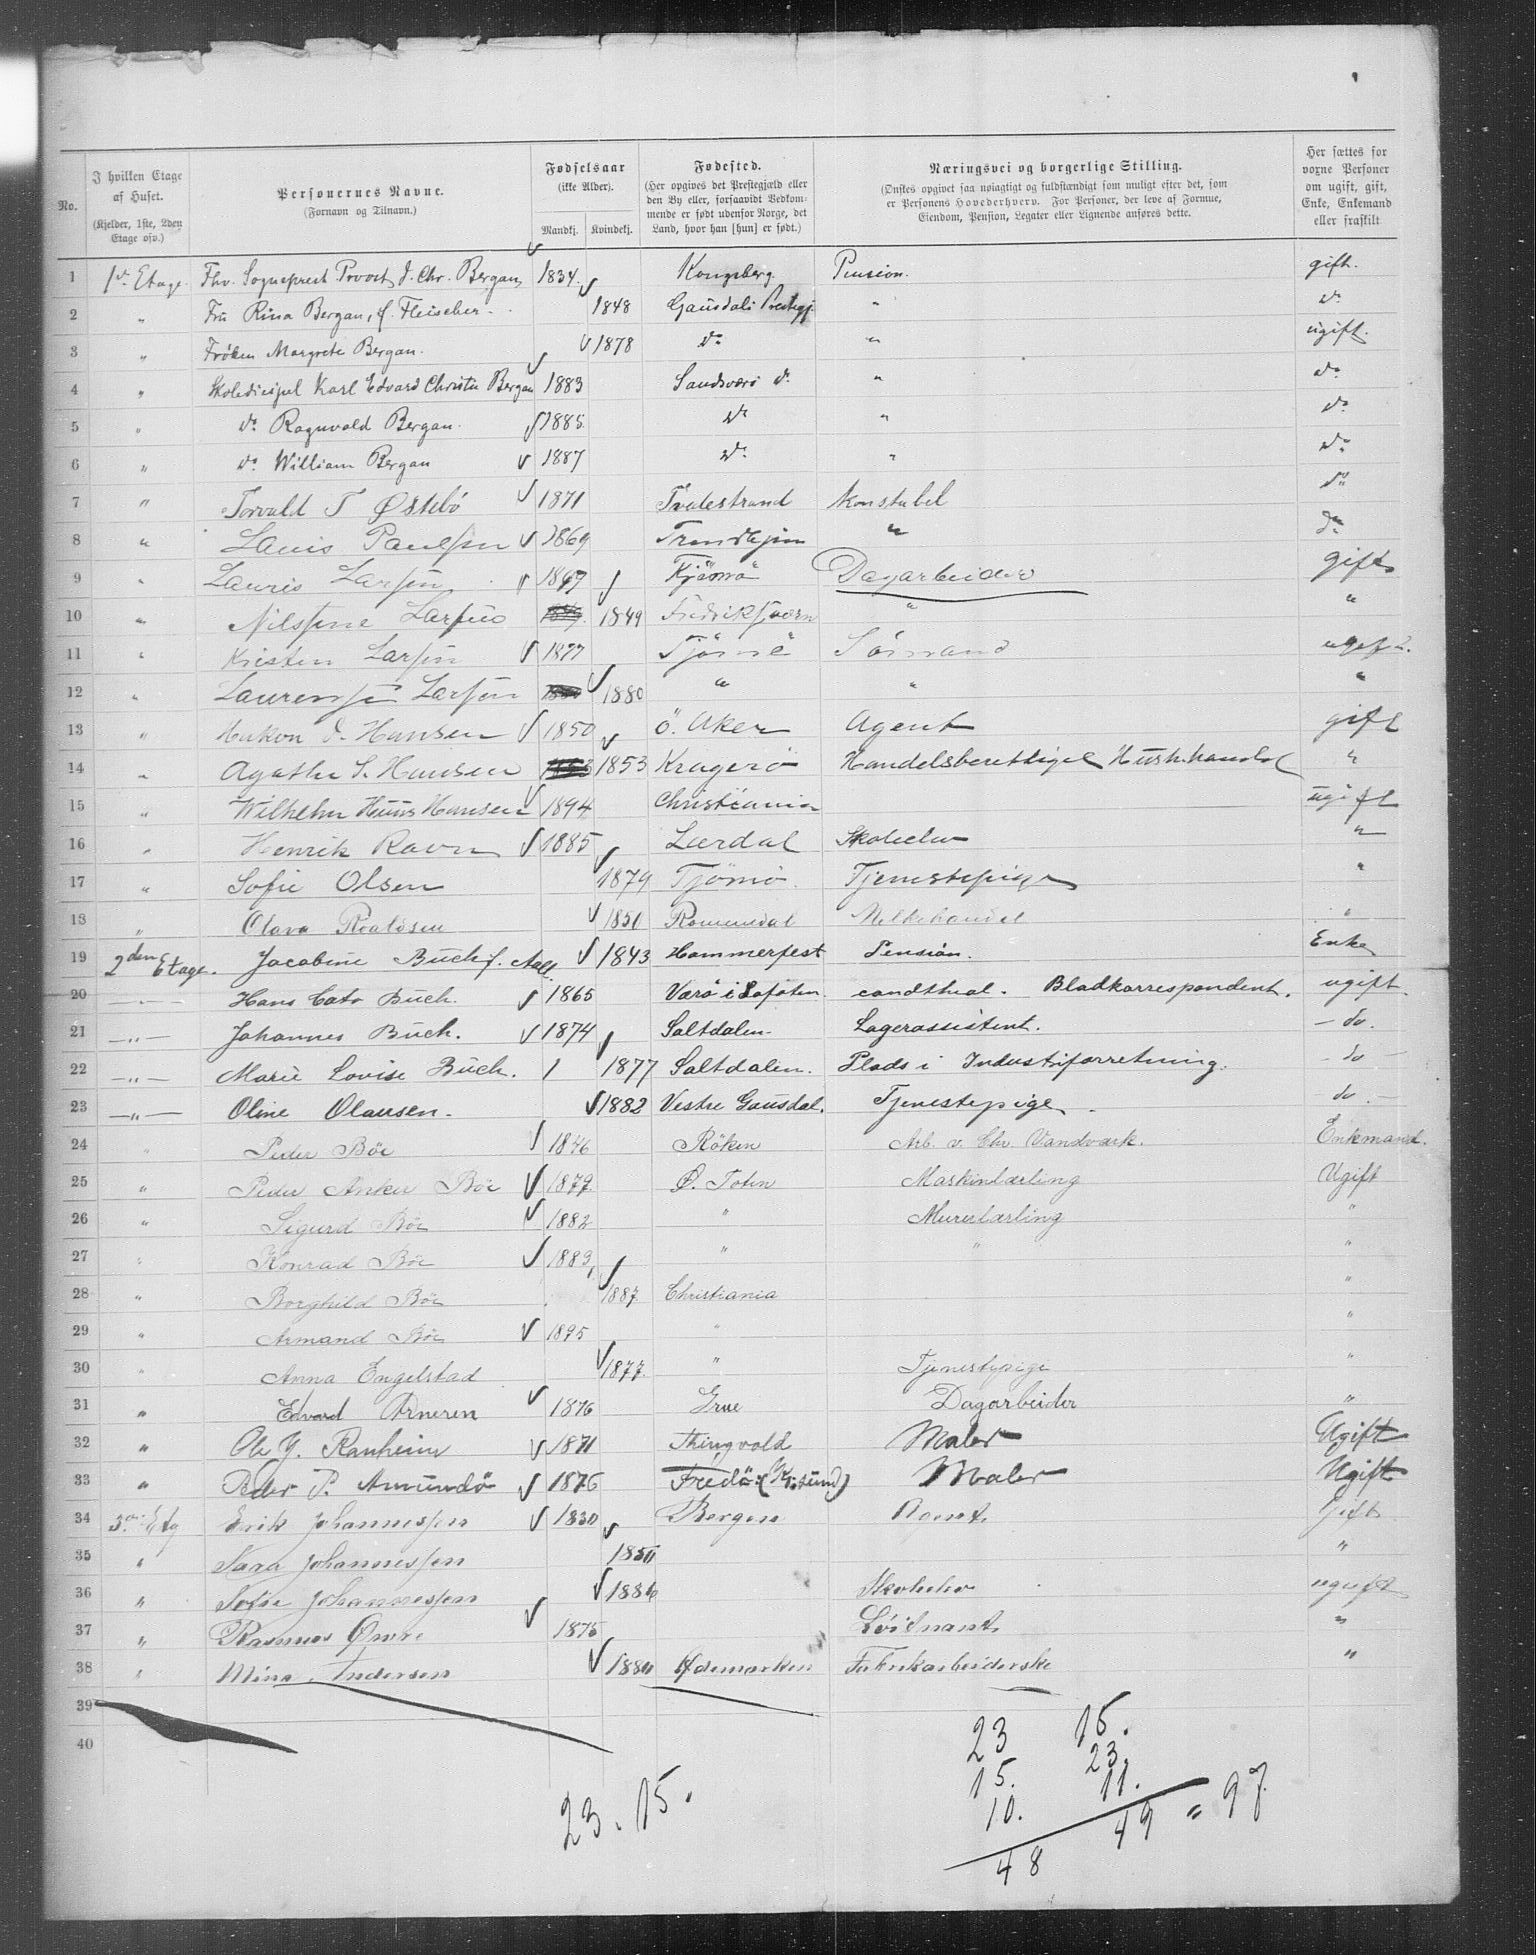 No.
I hvilken Etage af Huset.
(Kjelder, 1ste, 2den Etage osv.)
Personernes Navne.
(Fornavn og Tilnavn.)
Fødselsaar
(ikke Alder).
Mandkj. Kvindekj.
Fødested.
(Her opgives det Prestegjæld eller den By eller, forsaavidt Vedkommende er født udenfor Norge, det Land, hvor han [hun] er født.)
Næringsvei og borgerlige Stilling.
(Ønstes opgivet saa nøiagtigt og fuldstændigt som muligt efter det, som er Personens Hovederhverv. For Personer, der leve af Formue, Eiendom, Pension, Legater eller Lignende anføres dette.
Her sættes for vorne Personer om ugift, gift, Enke, Enkemand eller fraskilt
1 1st Etage Fhv. Sogneprest Provst J. Chr. Bergan 1834. Kongsberg. Pension. gift.
2 " Fru Rina Bergan, f. Fleischer. 1848 Gausdals Prestegj. " do
3 " Frøken Margrete Bergan. 1878 do " ugift.
4 " Skoledisipel Karl Edvard Christie Bergan 1883 Sandsværs do " do
5 " do Ragnvald Bergan. 1885. do " do
6 " do William Bergan 1887 do " do
7 " Torvald T Østebö 1871 Tvedestrand Konstabel do
8 " Lauis Paulsen 1869 Trondhjem " do
9 " Lauris Larsen 1847 Tjømø Dagarbeider gift
10 " Nilssine Larsen 1849 Fredriksværn " "
11 " Kristen Larsen 1877 Tjömö Sömand ugift.
12 " Laurense Larsen 1880 " " "
13 " Hakon J. Hansen 1850 Ö. Aker Agent gift
14 " Agathe S. Hansen 1853 Kragerö Handelsberettiget Hush.handel "
15 " Wilhelm Huus Hansen 1894 Christiania ugift
16 " Henrik Ravn 1885 Lærdal Skoleelev "
17 " Sofie Olsen 1879 Tjömö. Tjenestepige "
18 " Olava Roaldsen 1851 Rommedal Melkehandel "
19 2den Etage. Jacobine Buch f. Aall 1843 Hammerfest Pension. Enke
20 — " — Hans Cato Buch. 1865 Værö i Lofoten. cand theol. Bladkorrespondent. ugift.
21 — " — Johannes Buch. 1874 Saltdalen. Lagerassistent. — do.
22 — " — Marie Lovise Buch. 1877 Saltdalen. Plads i Industriforretning. — do —
23 — " — Oline Olausen. 1882 Vestre Gausdal. Tjenestepige. do. —
24 " Peder Böe 1846 Röken Arb. v. Chr. Vandværk. Enkemand.
25 " Peder Anker Böe 1879. Ø. Toten Maskinlærling Ugift
26 " Sigurd Böe 1882 " Murerlærling "
27 " Konrad Böe 1883, " " "
28 " Borghild Böe 1887. Christiania "
29 " Armand Böe 1895 " "
30 " Anna Engelstad 1877. " Tjenestepige "
31 " Edvard Arneren 1876 Grue Dagarbeider "
32 " Ole Y. Ranheim 1871 Thingvold Maler Ugift
33 " Peder P. Amundö 1876 Fredö: (Kr.sund) Maler Ugift
34 3die Etg Erik Johannessen 1830 Bergen Agent. Gift
35 " Sara Johannessen "
36 " Sofie Johannessen 1886 Skoleelev ugift
37 " Rasmus Omre 1875 Löitnant. "
38 " Mina Andersen Ødemarken Fabrikarbeiderske "
39
40
23. 15.
23 15.
15. 23.
10. 11.
48 49 = 97